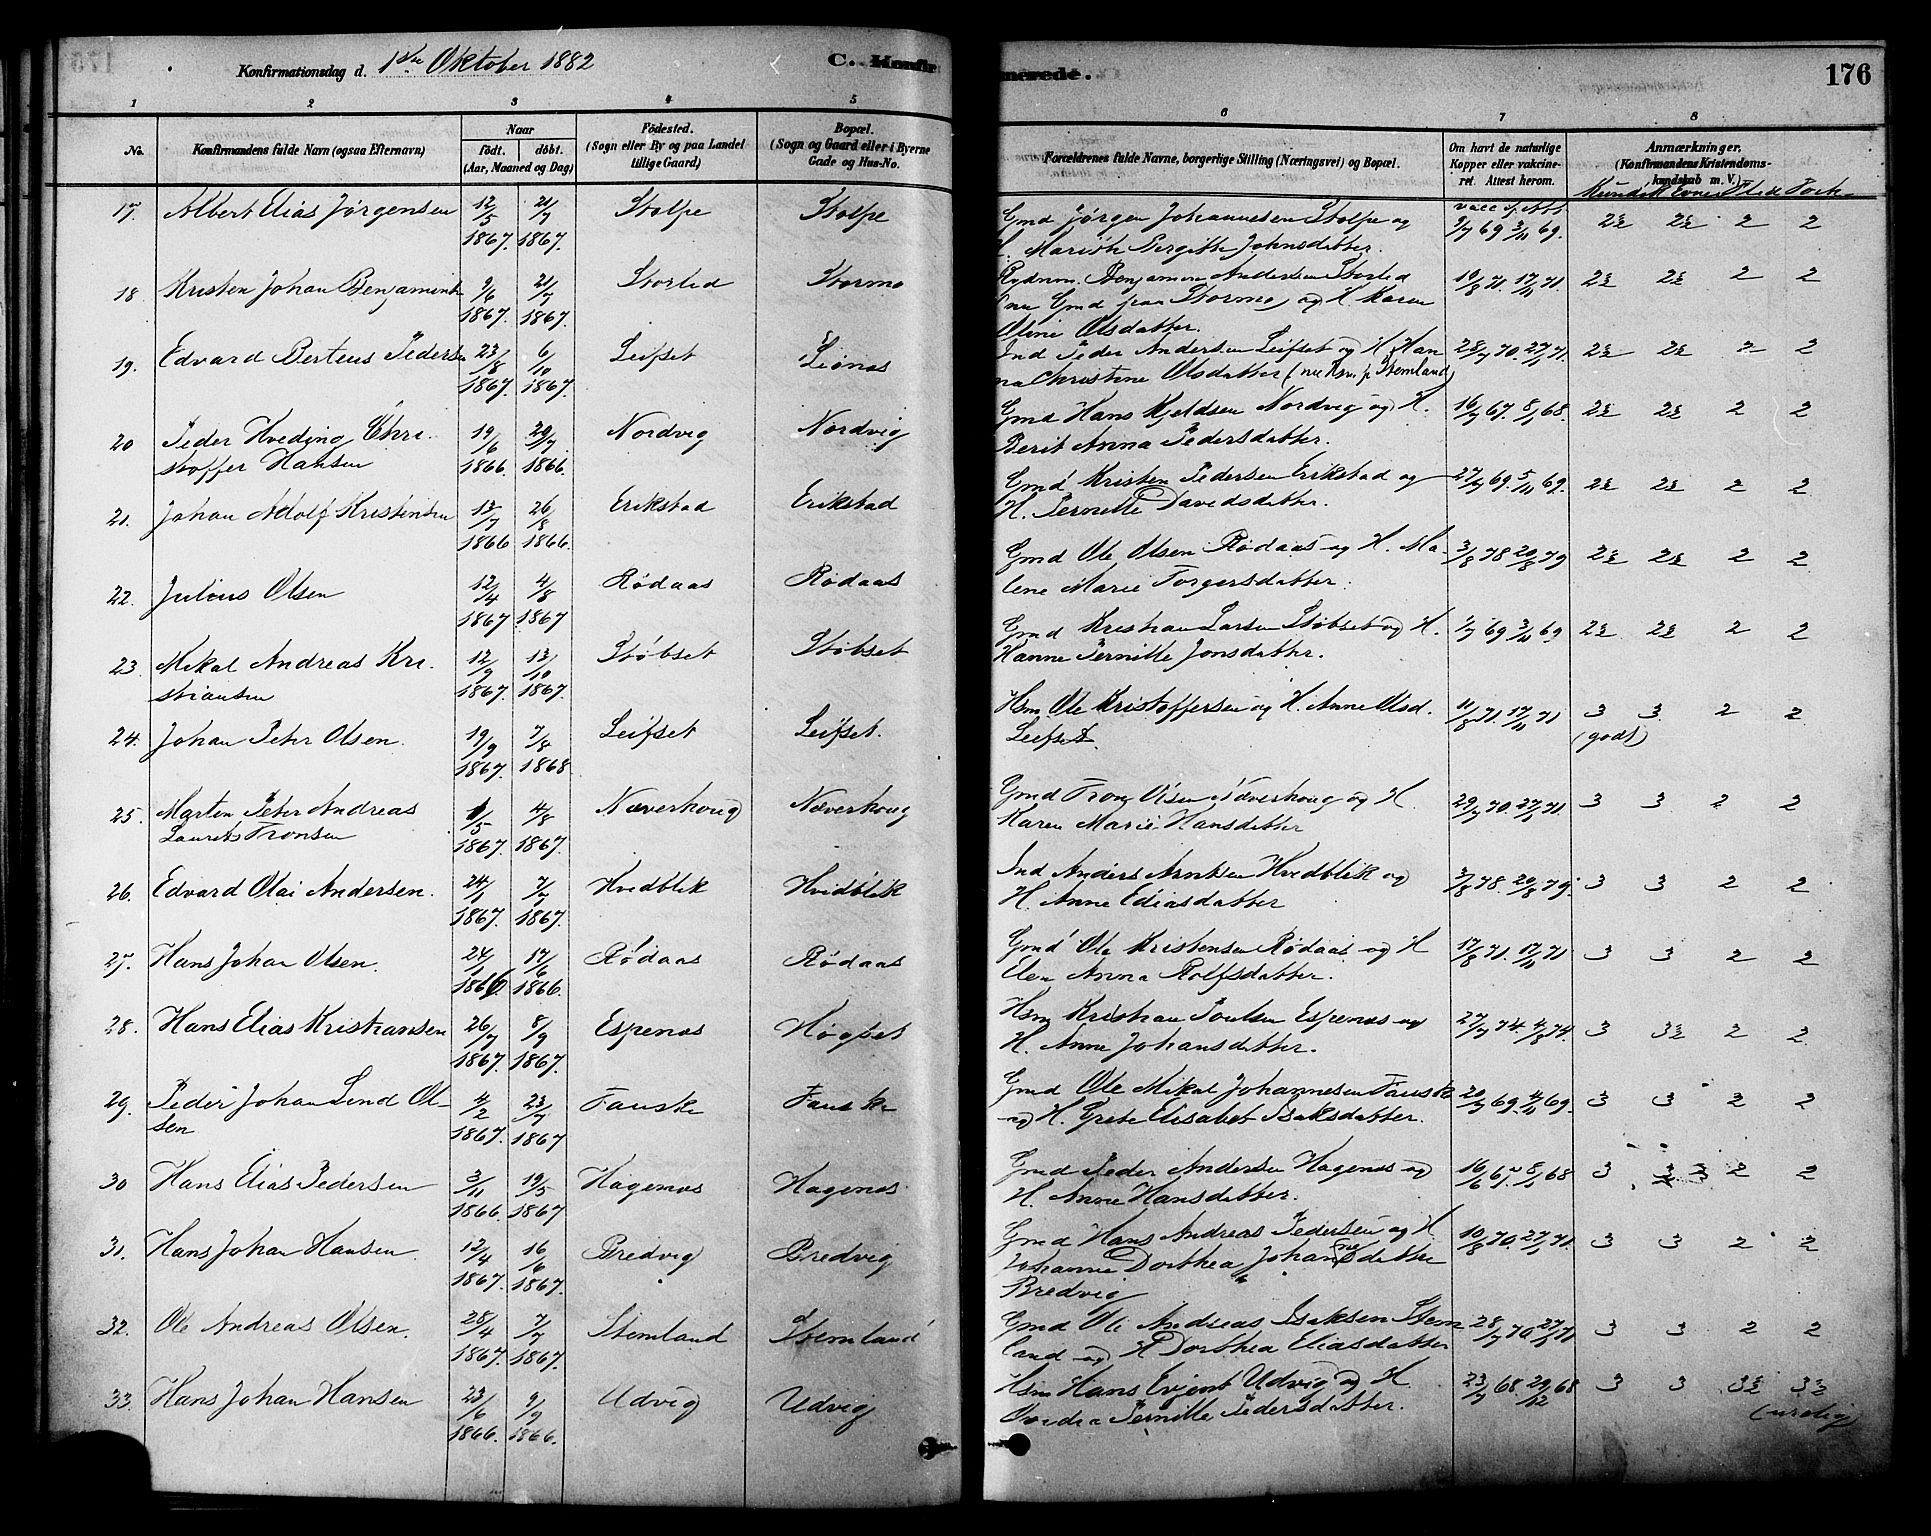 Konfirmationsdag d. 1ste Oktober 1882
C. Konfir
merede.
176
1 2 3 4 5 6 7 8
No.
Konfirmandens fulde Navn (ogsaa Efternavn)
Naar
födt. döbt.
(Aar, Maaned og Dag)
Födested.
(Sogn eller By og paa Landet
tillige Gaard)
Bopæl.
(Sogn og Gaard eller i Byerne
Gade og Hus-No.
Forældrenes fulde Navne, borgerlige Stilling (Næringsvei) og Bopæl.
Om havt de naturlige
Kopper eller vakcine-
ret. Attest herom.
Anmærkninger,
(Konfirmandens Kristendoms-
kundskab m. V.)
Kundsk Evner Flid
17. Albert Elias Jørgensen 12/5 1867. 21/7 1867. Stolpe Stolpe
Gmd Jørgen Johannesen Stolpe og
H. Marith Bergitte Johnsdatter. 7/7 69 3/11 69. 2½ 2½ 2 2
18 Kristen Johan Benjamins 9/6 1867. 21/7 1867. Storlid Stormo
Benjamin Andersen Storlid
(nu Gmd paa Stormo) og H. Karen
Oline Olsdatter. 19/8 71. 17/11 71. 2½ 2½ 2 2
19. Edvard Berteus Pedersen 23/8 1867. 6/10 1867. Leifset Leinæs
Ind Peder Andersen Leifset og H. Han
na Christine Olsdatter (nu Hsm. p Stemland) 28/7 70. 27/1 71. 2½ 2½ 2 2
20 Peder Hveding Chri-
stoffer Hansen 19/6 1866 29/7 1866. Nordvig Nordvig
Gmd Hans Kjeldsen Nordvig og H.
Berit Anna Pedersdatter. 16/7 67. 8/1 68. 2½ 2½ 2 2
21. Johan Adolf Kristensen 13/7 1866 26/8 1866. Erikstad Erikstad
Gmd Kristen Pedersen Erikstad og
H. Pernille Davidsdatter. 27/7 69. 5/11 69. 2½ 2½ 2 2
22. Julius Olsen 12/4 1867. 4/8 1867 Rødaas Rødaas
Gmd Ole Olsen Rødaas og H. Ma-
lene Marie Torgersdatter. 3/8 78 20/8 79 2½ 2½ 2 2
23. Mikal Andreas Kri-
stiansen 12/9 1867. 13/10 1867. Støbset Støbset
Gmd Kristian Larsen Støbset og H.
Hanne Pernille Jonsdatter. 7/7 69 3/11 69 2½ 2½ 2 2
24. Johan Peter Olsen. 19/9 1867. 7/8 1868 Leifset Leifset.
Hsm. Ole Kristoffersen og H. Anne Olsd.
Leifset. 11/8 71. 17/11 71 3 3 2 2
(godt)
25. Marten Peter Andreas
Laurits Tronsen 1/5 1867. 4/8 1867. Næverhoug Næverhoug
Gmd Tron Olsen Næverhoug og H.
Karen Marie Hansdatter 29/7 70. 27/1 71. 3 3 2 2
26. Edvard Olai Andersen. 24/1 1867. 7/7 1867. Hvidblik Hvidblik
Ind Anders Arntsen Hvidblik og
H. Anne Ediasdatter 3/8 78. 20/8 79. 3 3 2 2
27. Hans Johan Olsen. 24/1 1866. 17/6 1866. Rødaas Rødaas
Gmd Ole Kristensen Rødaas og H
Elen Anna Rolfsdatter. 17/8 71. 17/11 71 3 3 2 2
28. Hans Elias Kristiansen 26/7 1867. 8/9 1867. Espenæs Høgset
Hsm Kristian Poulsen Espenæs og
H. Anne Johansdatter. 27/7 74. 4/8 74. 3 3½ 2 2
29. Peder Johan Lind Ol-
sen 4/2 1867. 23/7 1867 Fauske Fauske
Gmd Ole Mikal Johannesen Fauske
og H. Grete Elisabet Isaksdatter. 20/7 69. 4/11 69. 3 3 2 2
30 Hans Elias Pedersen 3/11 1866. 19/5 1867 Hagenæs Hagenæs
Gmd Peder Andersen Hagenæs og
H. Anne Hansdatter. 16/6 67. 8/1 68 3 3 2 2
31. Hans Johan Hansen. 12/4 1867. 16/6 1867. Bredvig Bredvig
Gmd Hans Andreas Pedersen og H.
Johanne Dorthea Johannesdatter
Bredvig 10/8 70. 27/1 71. 3 3 2 2
32. Ole Andreas Olsen. 28/4 1867. 7/7 1867. Stemland Stemland
Gmd Ole Andreas Isaksen Stem
land og H Dorthea Eliasdatter 28/7 70 27/1 71 3 3 2 2
33. Hans Johan Hansen 23/6 1866. 9/9 1866. Udvig Udvig
Hsm Hans Evjent Udvig og H.
Pernille Pedersdatter. 23/7 68. 29/12 68 3 3 3½ 3½
(urolig)